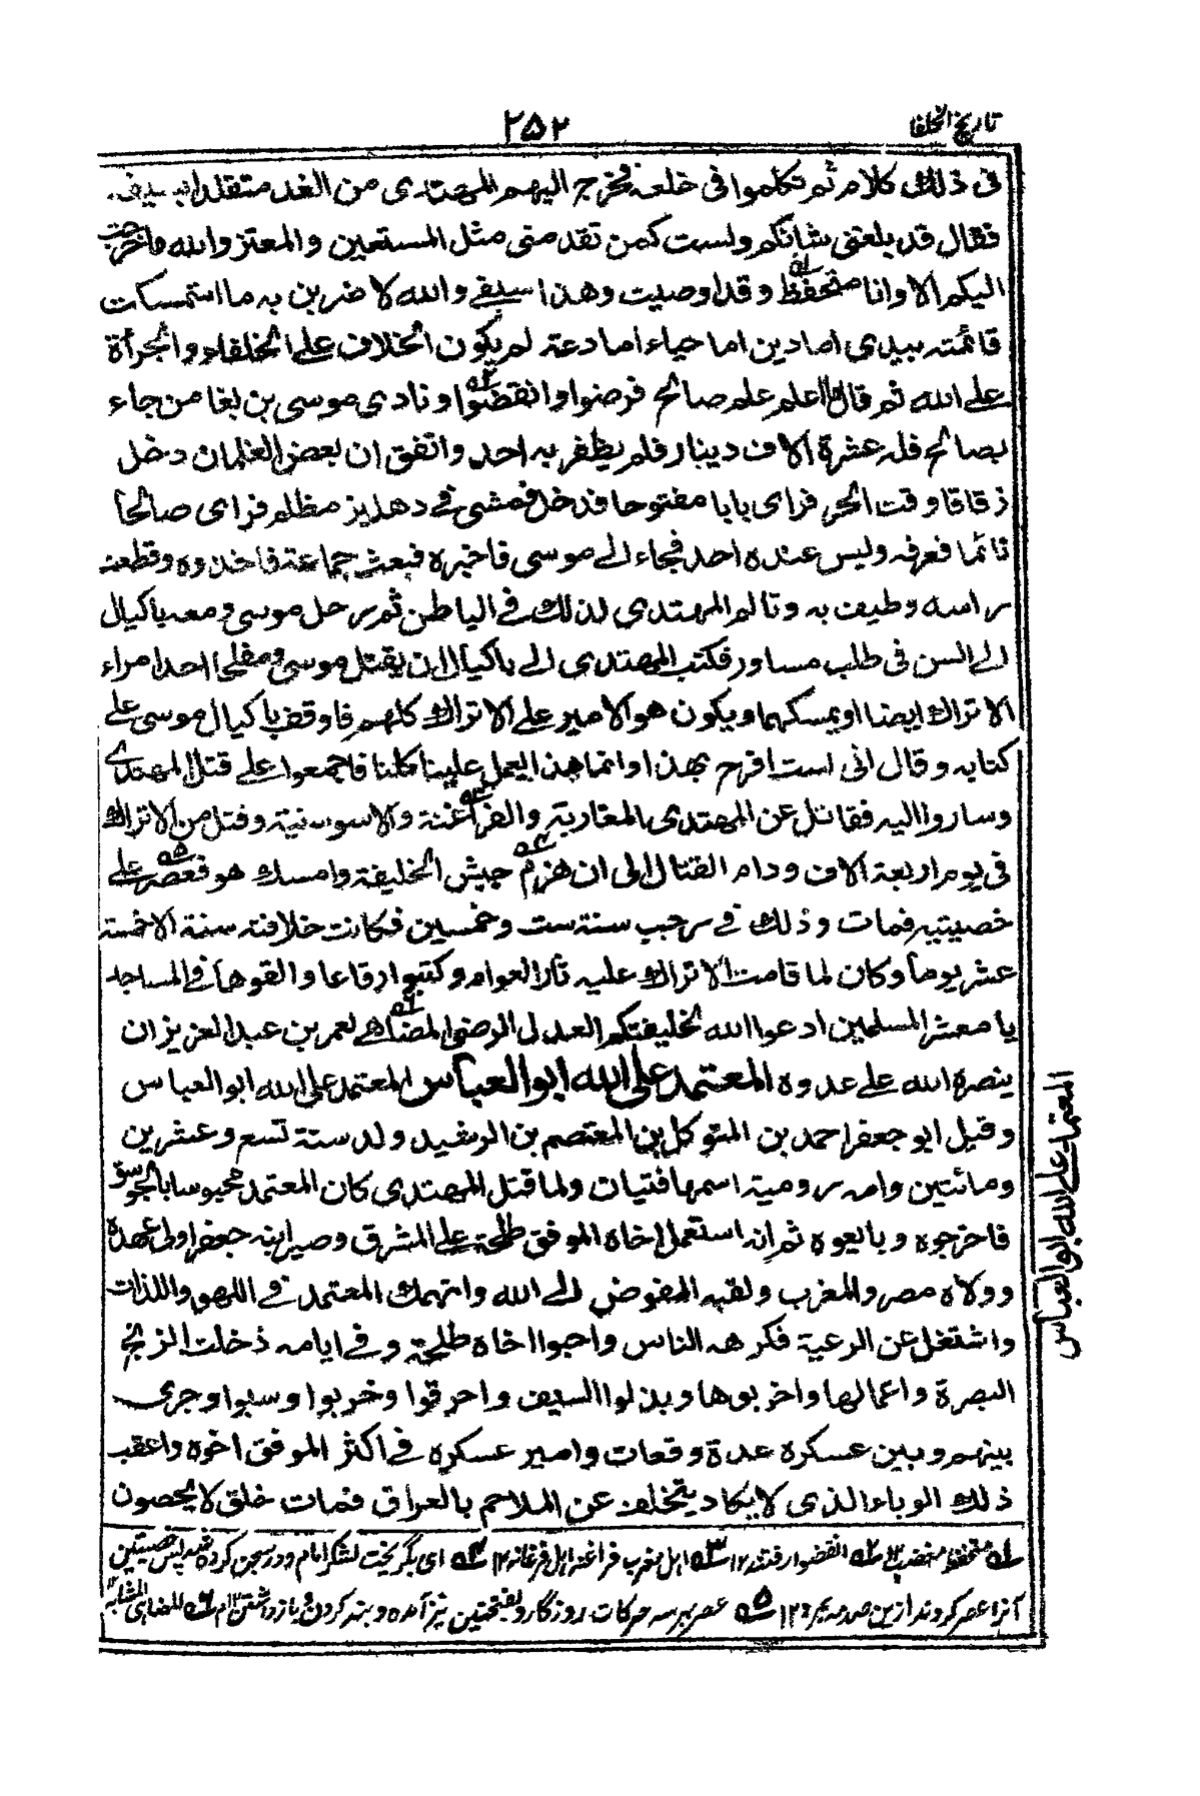 تاريخ الخلفا
٢٥٢
فى ذلك كلام ثم تكلموا فى خلعه فخرج اليهم المهتدى من الغد متقلدا بسيفه
فقال قد بلغنى شانكم ولست كمن تقدمنى مثل المستعين والمعتز والله ما خرجت
اليكم الا وانا متحفظ وقد اوصيت وهذا سيفى والله لاضربن به ما استمسكت
قائمته بيدى اما دين اما حياء اما دعة لم يكون الخلاف على الخلفاء والجرأة
على الله ثم قال ما اعلم علم صالح فرضوا وانفضوا ونادى موسى بن بغا من جاء
بصالح فله عشرة الاف دينار فلم يظفر به احد واتفق ان بعض الغلمان دخل
زقاقا وقت الحر فراى بابا مفتوحا فدخل فمشى فى دهليز مظلم فراى صالحا
نائما فعرفه وليس عنده احد فجاء الى موسى فاخبره فبعث جماعة فاخذوه وقطعت
راسه وطيف به وتالم المهتدى لذلك فى الباطن ثم رحل موسى ومعه باكيال
الى السن فى طلب مساور فكتب المهتدى الى باكيال ان يقتل موسى ومفلحا احد امراء
الاتراك ايضا او يمسكهما ويكون هو الامير على الاتراك كلهم فاوقف باكيال موسى على
كتابه وقال انى لست افرح بهذا وانما هذا يعمل علينا كلنا فاجمعوا على قتل المهتدى
وساروا اليه فقاتل عن المهتدى المغاربة والفراغنة والاسروسنية وقتل من الاتراك
فى يوم اربعة الاف ودام القتال الى ان هزم جيش الخليفة وامسك هو فعصر على
خصيتيه فمات وذلك فى رجب سنة ست وخمسين فكانت خلافته سنة الا خمسة
عشر يوما وكان لما قامت الاتراك عليه ثار العوام وكتبوا رقاعا والقوها فى المساجد
يا معشر المسلمين ادعوا الله لخليفتكم العدل الرضى المضاهى لعمر بن عبد العزيز ان
ينصره الله على عدوه المعتمد على الله ابو العباس المعتمد على الله ابو العباس
وقيل ابو جعفر احمد بن المتوكل بن المعتصم بن الرشيد ولد سنة تسع وعشرين
ومائتين وامه رومية اسمها فتيان ولما قتل المهتدى كان المعتمد محبوسا بالجوسق
فاخرجوه وبايعوه ثم انه استعمل اخاه الموفق طلحة على المشرق وصير ابنه جعفرا ولى عهده
وولاه مصر والمغرب ولقبه المفوض الى الله وانهمك المعتمد فى اللهو واللذات
واشتغل عن الرعية فكرهه الناس واحبوا اخاه طلحة وفى ايامه دخلت الزنج
البصرة واعمالها واخربوها وبذلوا السيف واحرقوا وخربوا وسبوا وجرى
بينهم وبين عسكره عدة وقعات وامير عسكره فى اكثر الموفق اخوه واعقب
ذلك الوباء الذى لا يكاد يتخلف عن الملاحم بالعراق فمات خلق لا يحصون
له متحفظ ١٢ ٢ انفضوا رفتند ١٢ ٣ اہل مغرب فراغنہ اہل فرغانہ ١٢ ٤ اى بگريخت لشكر امام
آنرا عصر كردند ازين صدمہ بمرد ١٢ ٥ عصر بہر سہ حركات روزگار وبفتحتين نيز آمده وبند كردن وبازداشتن ١٢ ٦ المضاہى المشابہ
المعتمد على الله ابو العباس